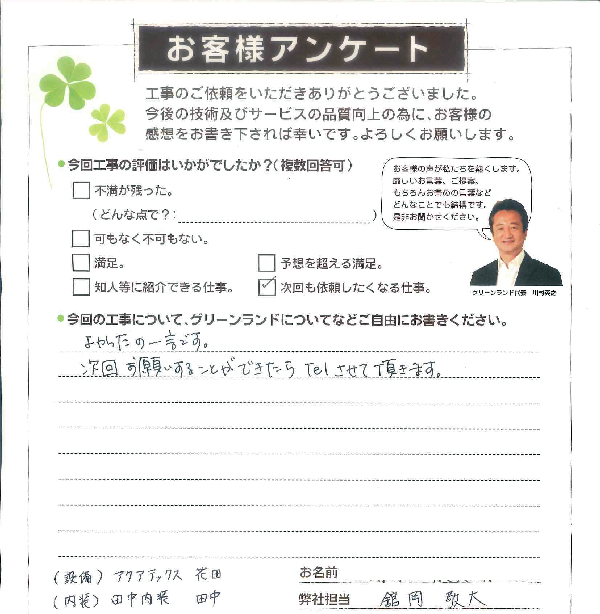 お客様アンケート
工事のご依頼をいただきありがとうございました。
今後の技術及びサービスの品質向上の為に、お客様の
感想をお書き下されば幸いです。よろしくお願いします。
●今回工事の評価はいかがでしたか?(複数回答可)
□不満が残った。
(どんな点で?:　)
□可もなく不可もない。
□満足。
□予想を超える満足。
□知人等に紹介できる仕事。
☑次回も依頼したくなる仕事。
お客様の声が私たちを熱くします。
厳しいお言葉、ご提案、
もちろんお褒めの言葉など
どんなことでも結構です。
是非お聞かせください。
グリーンランド代表
●今回の工事について、グリーンランドについてなどご自由にお書きください。
よかったの一言です。
次回お願いすることができたらTelさせて頂きます。
(設備) アクアテックス 花田
(内装) 田中内装 田中
お名前
弊社担当 舘岡 敬大